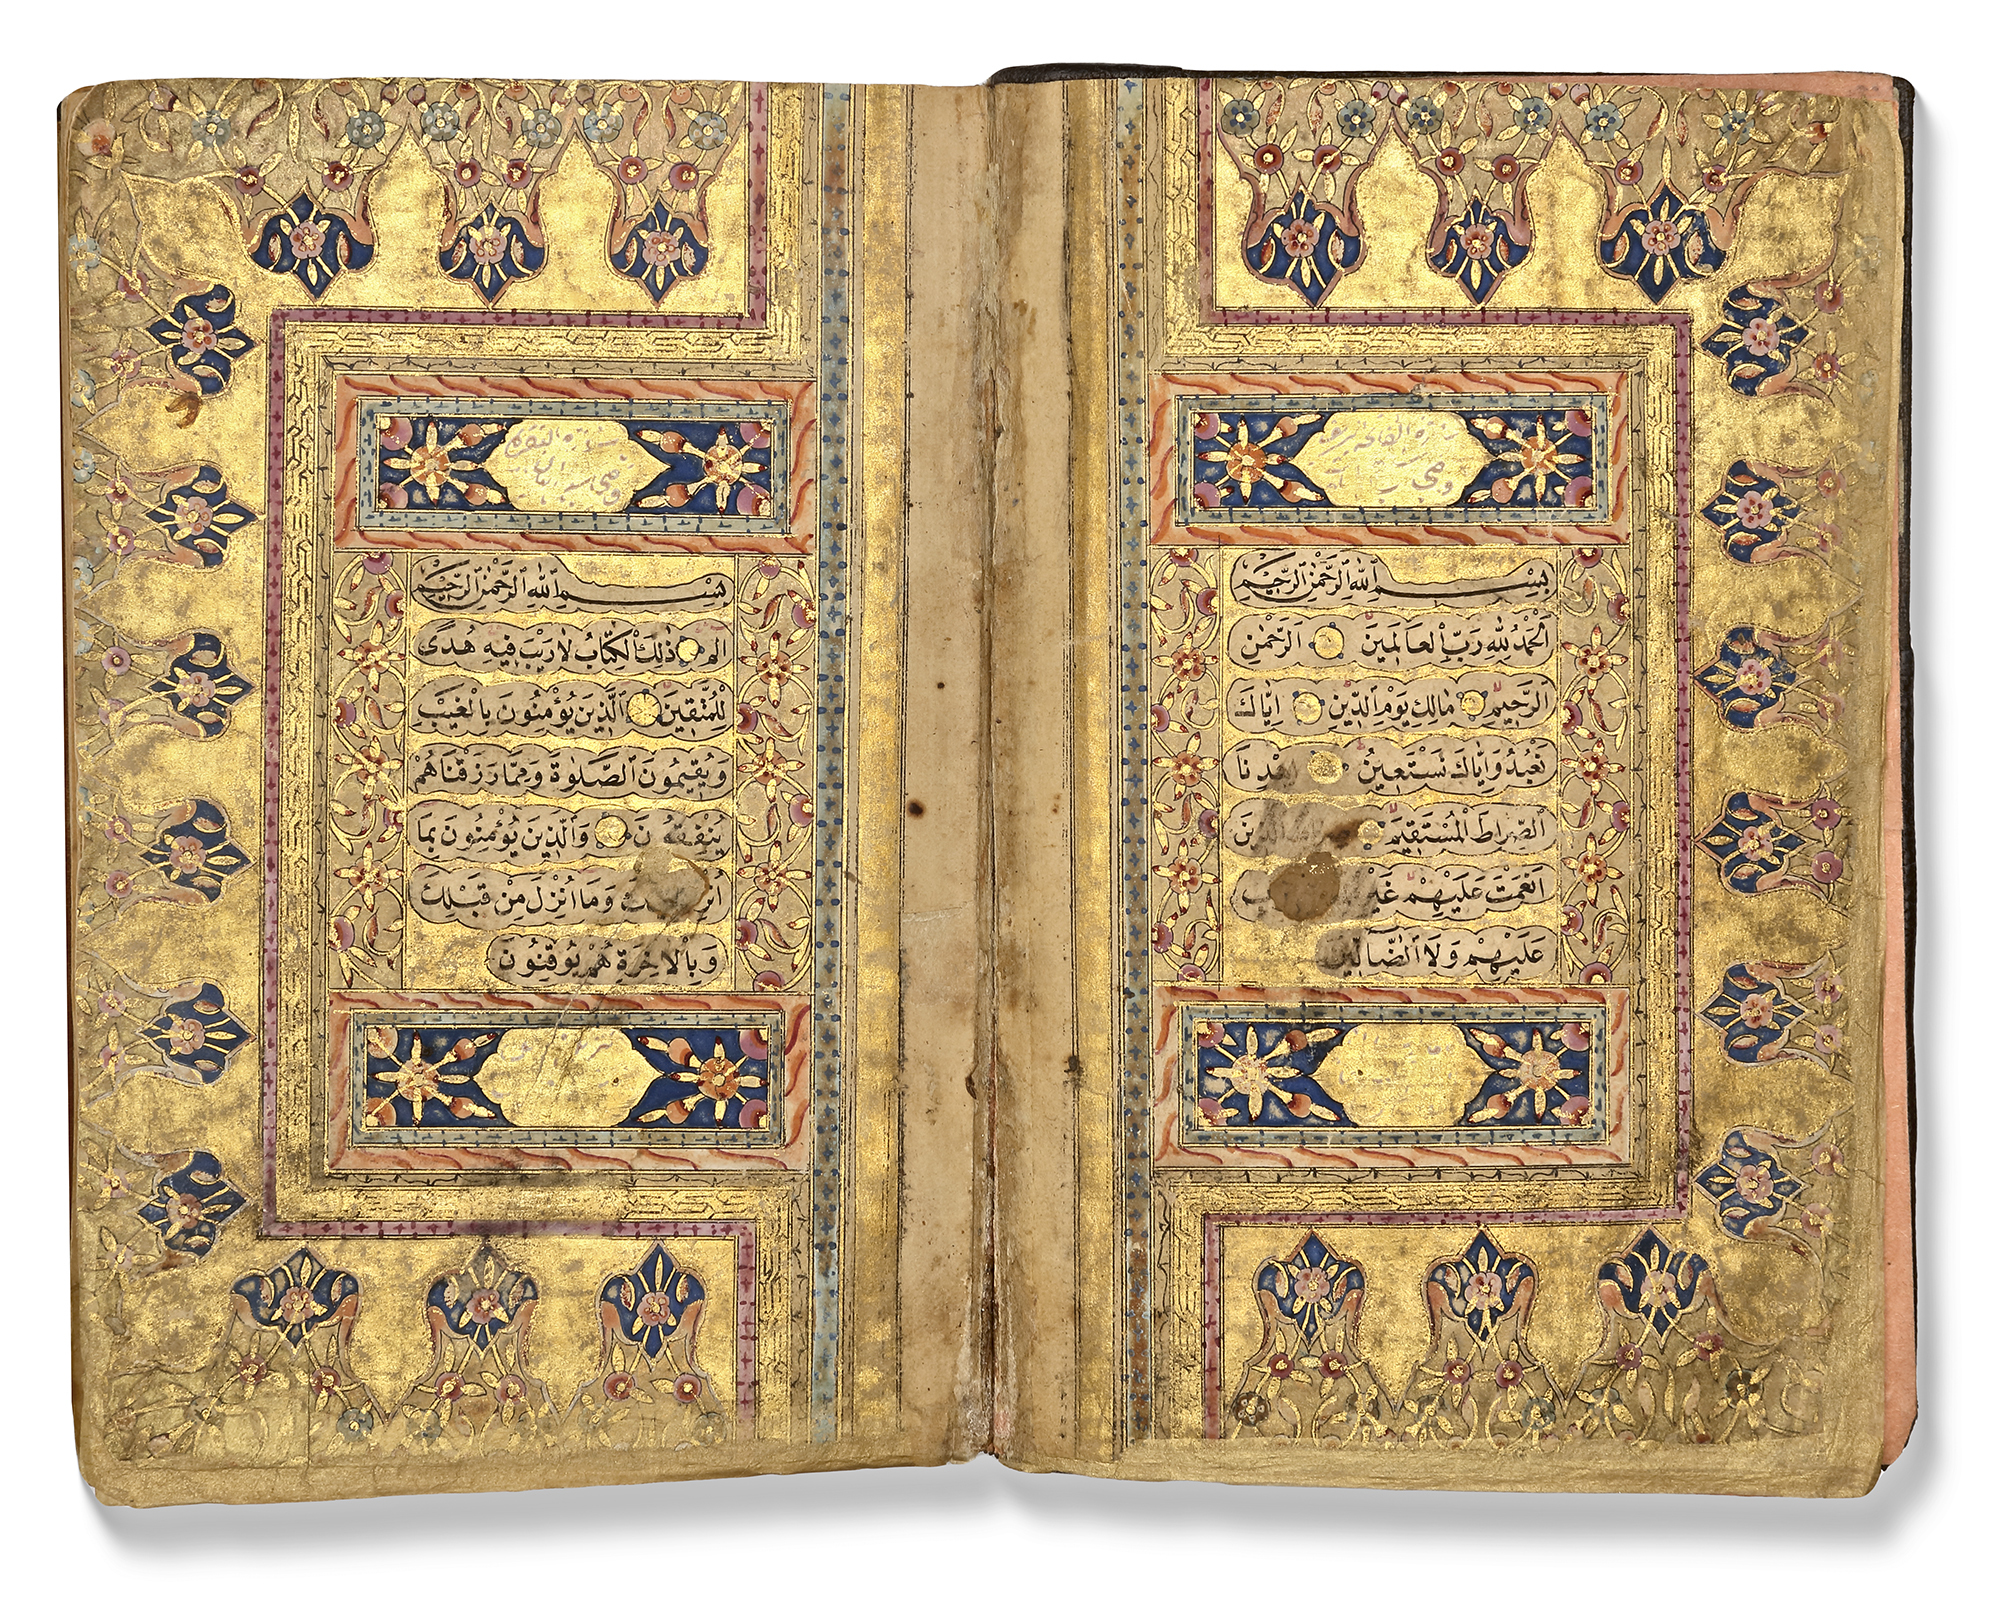 سورة الفاتحة سبع
وهي
بسم الله الرحمن الرحيم
الحمدُ لِلّٰهِ رَبِّ العَالَمِينَ الرَّحْمٰنِ
الرَّحِيمِ مَالِكِ يَوْمِ الدِّينِ اِيَّاكَ
نَعْبُدُ وَاِيَّاكَ نَسْتَعِينُ اِهْدِنَا
الصِّرَاطَ الْمُسْتَقِيمَ
اَنْعَمْتَ عَلَيْهِمْ غَيْرِ
عَلَيْهِمْ وَلَا الضَّالِّينَ
سورة البقرة
وهي
بِسْمِ اللهِ الرَّحْمٰنِ الرَّحِيمِ
الم ذٰلِكَ الْكِتَابُ لَا رَيْبَ فِيهِ هُدًى
لِلْمُتَّقِينَ الَّذِينَ يُؤْمِنُونَ بِالْغَيْبِ
وَيُقِيمُونَ الصَّلٰوةَ وَمِمَّا رَزَقْنَاهُمْ
يُنْفِقُونَ وَالَّذِينَ يُؤْمِنُونَ بِمَا
وَمَا اُنْزِلَ مِنْ قَبْلِكَ
وَبِالْاٰخِرَةِ هُمْ يُوقِنُونَ